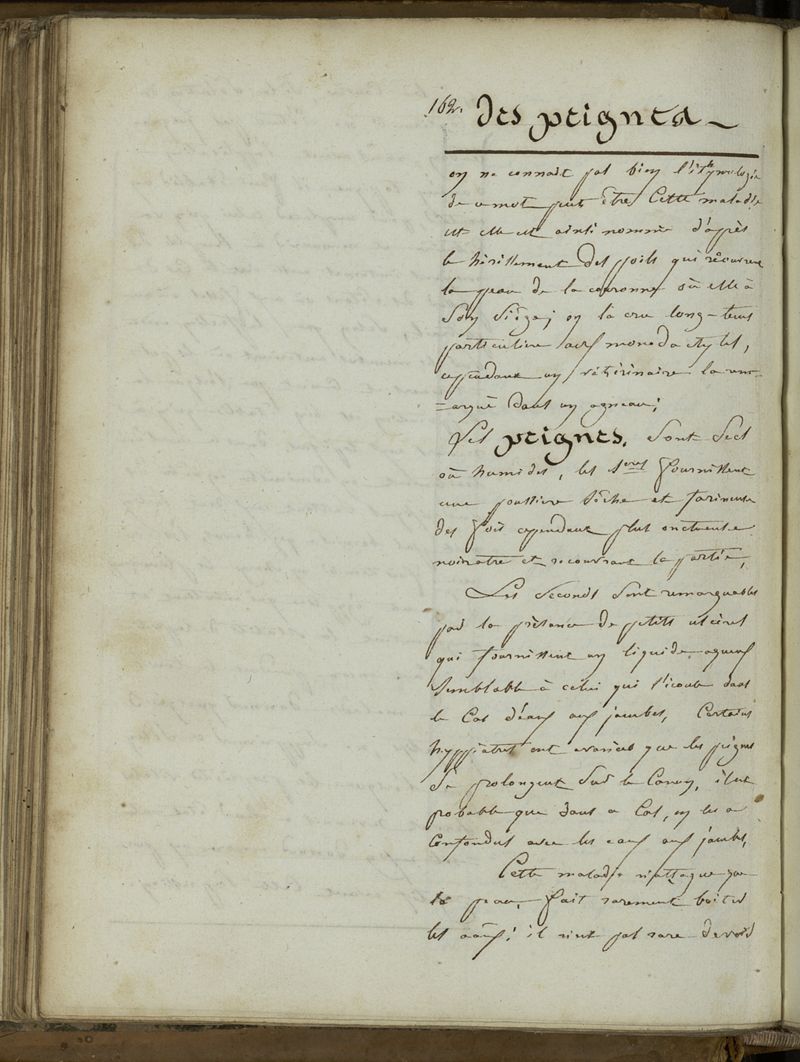 162. des peignes
on ne connait pas bien l'ethymologie
de ce mot peut être Cette maladie
est elle ainsi nommée d'après
le hérissement des poils qui récouvrent
la peau de la couronne où elle à
Son Siège; on l'a cru long-tems
particuliere aux monodactyles,
cependant un vétérinaire la rem-
=arqué dans un agneau;
Les peignes, Sont Secs
où humides, les 1ers fournissent
une poussiere sêche et farineuse
des fois cependant plus onctueuse
noiratre et recouvrant la partie,
Les Seconds Sont remarquables
par la présence de petits ulcères
qui fournissent un liquide aqueux
Semblable à celui qui s'écoule dans
le Cas d'eaux aux jambes, Certains
hyppiatres ont avancés que les peignes
Se prolongent Sur le Canon, il est
probable que dans ce Cas, on les a
Confondus avec les eaux aux jambes,
Cette maladie n'attaque que
la peau, fait rarement boiter
les; il n'est pas rare de voir